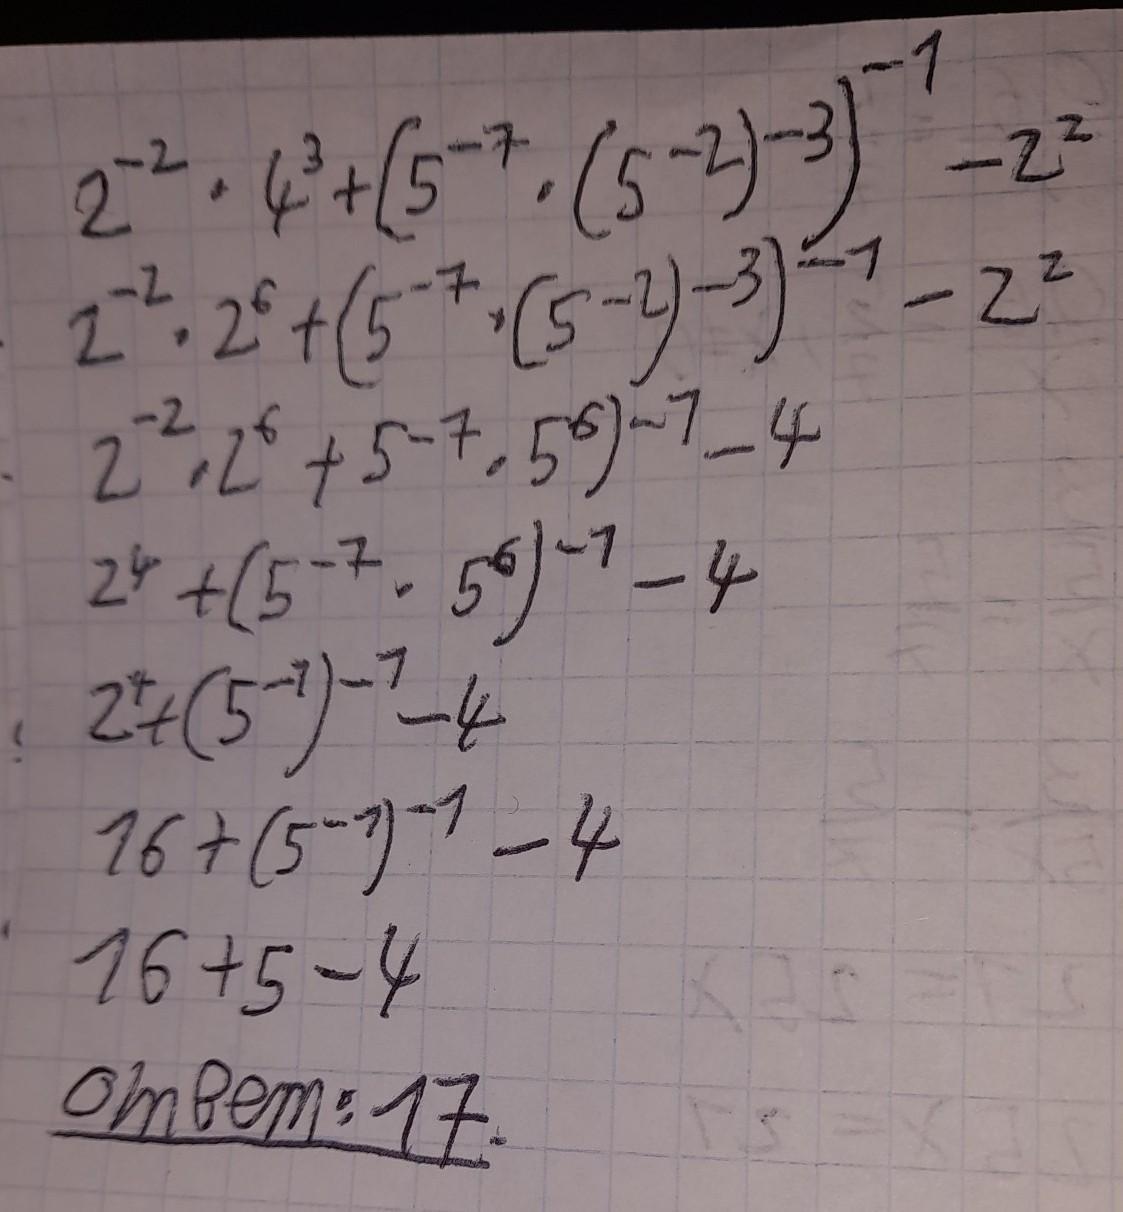 2⁻² · 4³ + (5⁻⁷ · (5⁻²)⁻³)⁻¹ − 2²
2⁻² · 2⁶ + (5⁻⁷ · (5⁻²)⁻³)⁻¹ − 2²
2⁻² · 2⁶ + 5⁻⁷ · 5⁶)⁻¹ − 4
2⁴ + (5⁻⁷ · 5⁶)⁻¹ − 4
2⁴ + (5⁻¹)⁻¹ − 4
16 + (5⁻¹)⁻¹ − 4
16 + 5 − 4
ответ: 17.